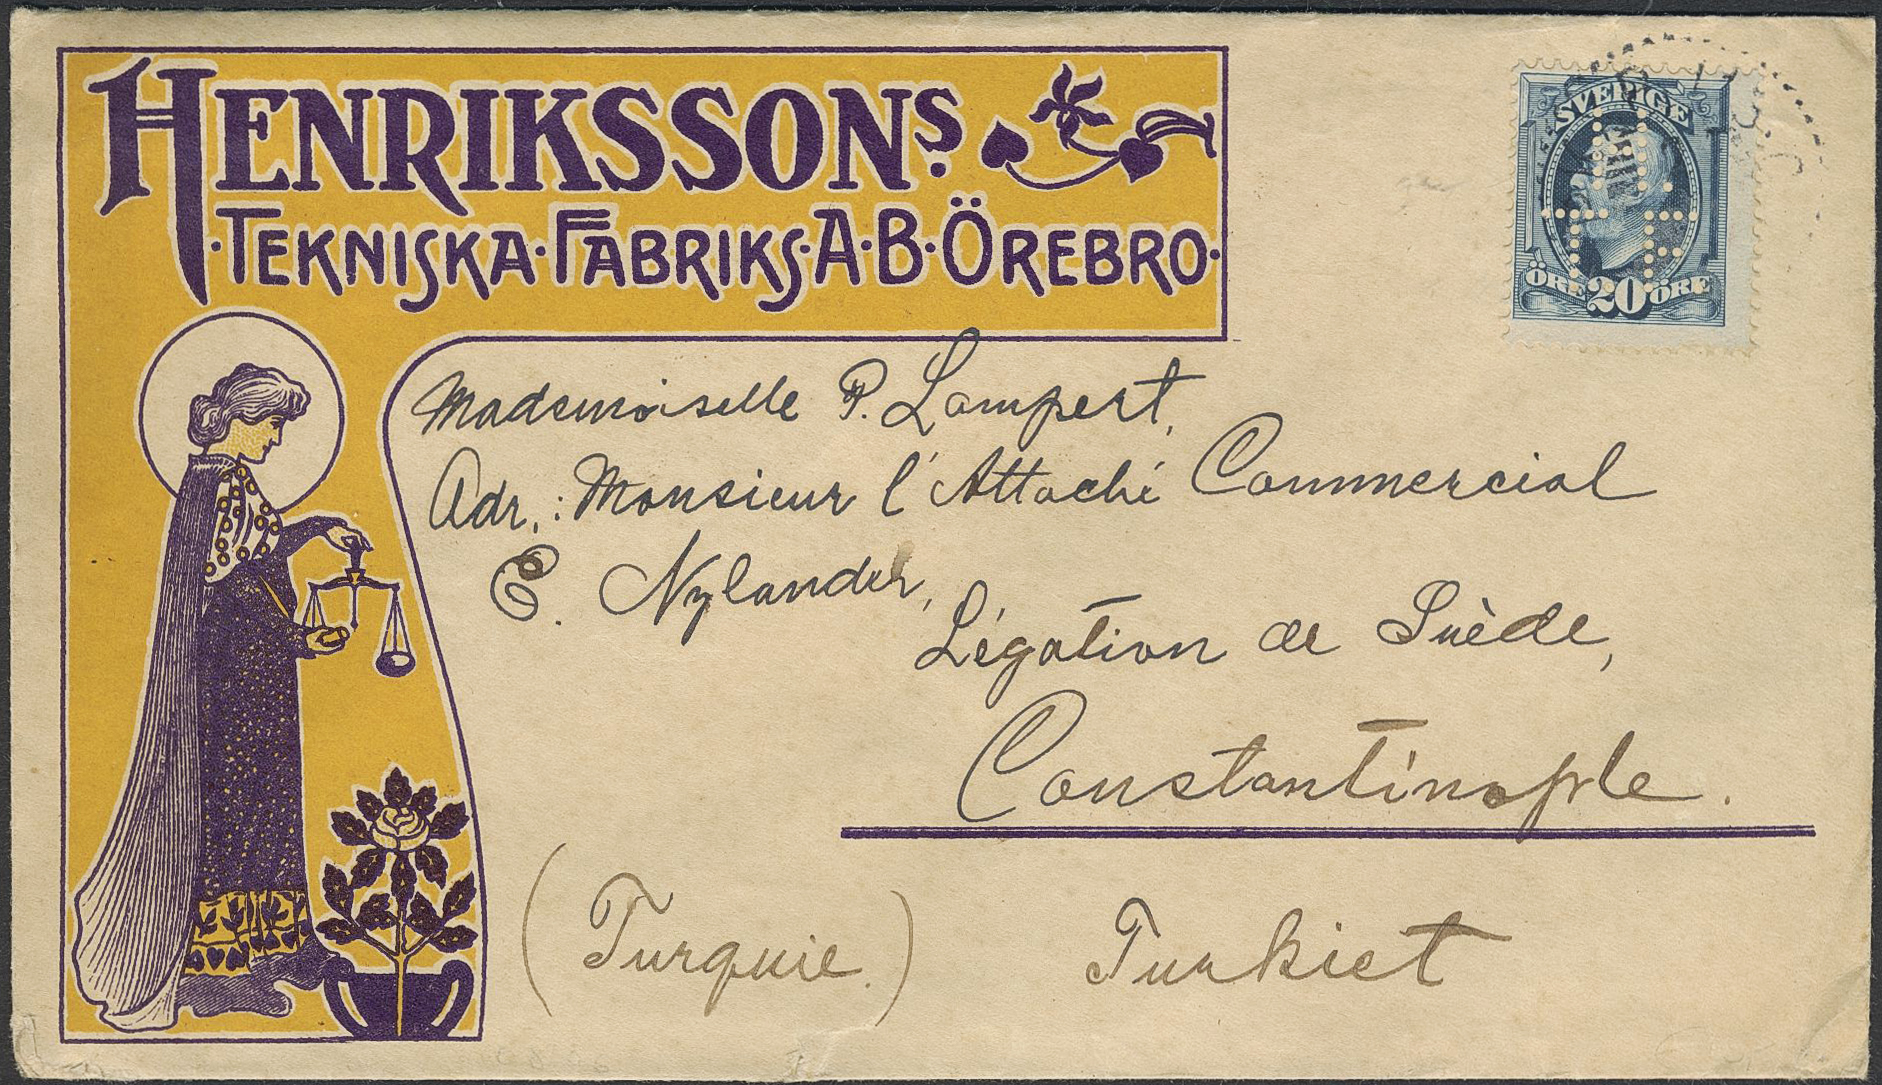 HENRIKSSONS.
·TEKNISKA·FABRIKS·A·B·ÖREBRO·
SVERIGE
ÖRE 20 ÖRE
H.
T F
Mademoiselle P. Lampert,
Adr.: Monsieur l'Attaché Commercial
E. Nylander,
Légation de Suède,
Constantinople.
(Turquie.) Turkiet